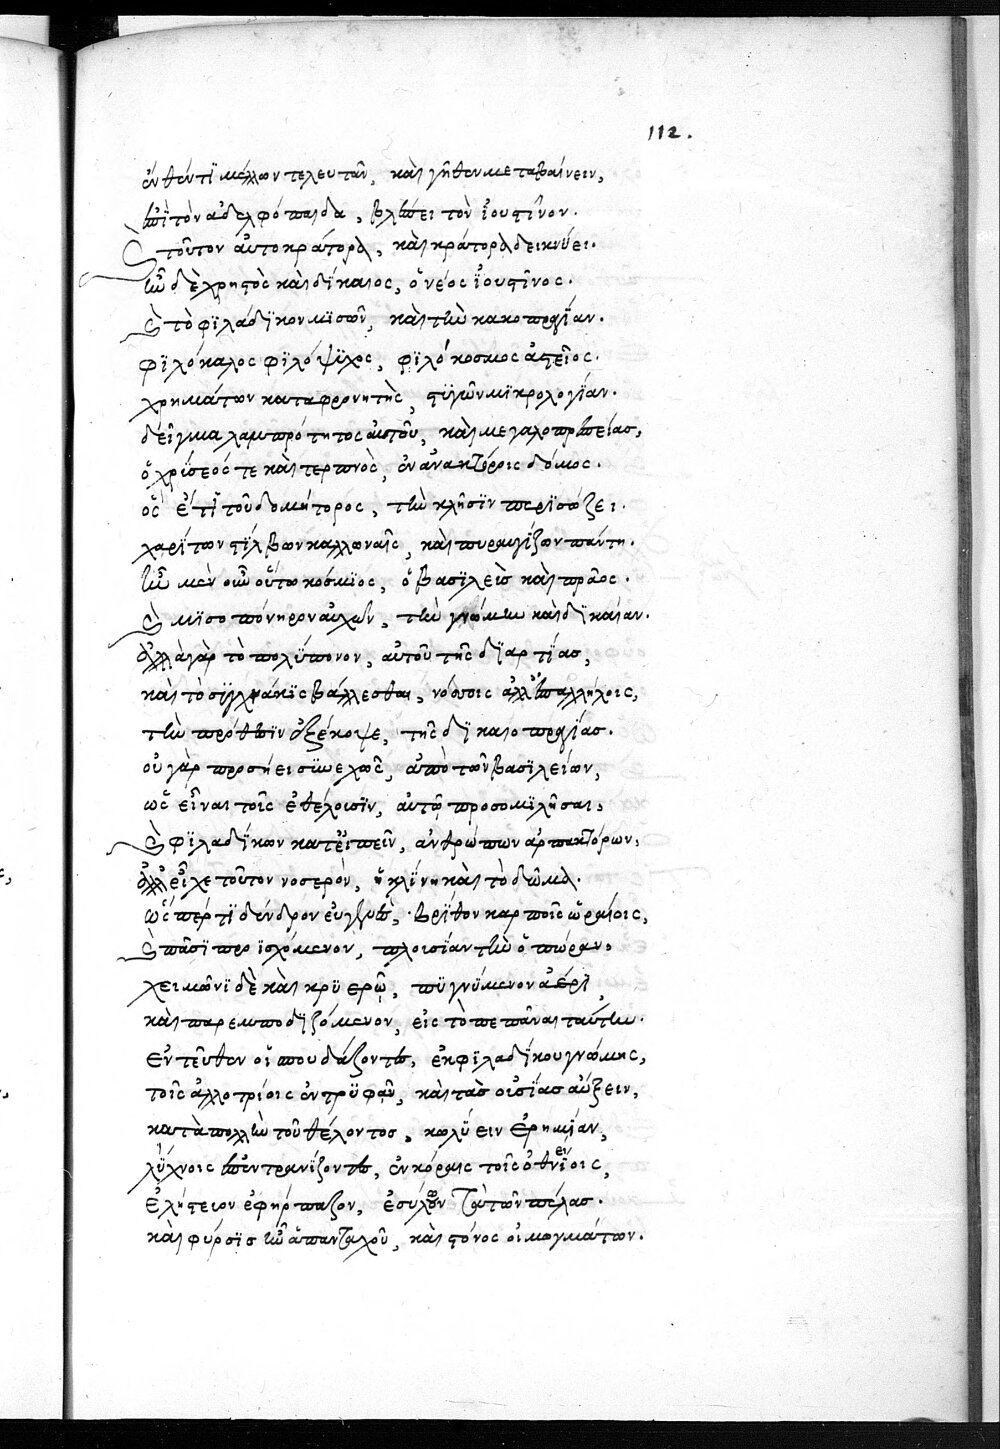 112.
ἐνθέντι μέλλων τελευτᾶν, καὶ γῆθεν μεταβαίνειν,
ἐπὶ τὸν ἀδελφόπαιδα, βλέπει τὸν ἰουστῖνον.
καὶ τοῦτον αὐτοκράτορα, καὶ κράτορα δεικνύει.
ἦν δὲ χρηστὸς καὶ δίκαιος, ὁ νέος ἰουστῖνος.
καὶ τὸ φιλάδικον μισῶν, καὶ τὴν κακοπραγίαν.
φιλόκαλος φιλόψυχος, φιλόκοσμος ἀστεῖος.
χρημάτων καταφρονητὴς, στυγῶν μικρολογίαν.
δεῖγμα λαμπρότητος αὐτοῦ, καὶ μεγαλοπρεπείας,
ὁ χρύσεός τε καὶ τερπνὸς, ἐν ἀνακτόροις δόμος.
ὃς ἔτι τοῦ δομήτορος, τὴν κλῆσιν περισώζει.
χαρίτων στίλβων καλλωναῖς, καὶ πυραυγίζων πάντη.
ἦν μὲν οὖν οὕτω κόσμιος, ὁ βασιλεὺς καὶ πρᾶος.
καὶ μισοπόνηρον αὐχῶν, τὴν γνώμην καὶ δικαίαν.
ἀλλὰ γὰρ τὸ πολύπονον, αὐτοῦ τῆς διαρτίας,
καὶ τὸ συχνάκις βάλλεσθαι, νόσοις ἀλλεπαλλήλοις,
τὴν πρόθεσιν ἐξέκοψε, τῆς δικαιοπραγίας.
οὐ γὰρ προσήει συνεχῶς, ἀπὸ τῶν βασιλείων,
ὡς εἶναι τοῖς ἐθέλουσιν, αὐτῷ προσομιλῆσαι,
καὶ φιλαδίκων κατειπεῖν, ἀνθρώπων ἁρπακτόρων,
ἀλλ' εἶχε τοῦτον νοσερὸν, ἡ κλίνη καὶ τὸ δῶμα.
ὥσπέρ τι δένδρον εὐγενὲς, βρῖθον καρποῖς ὡραίοις,
καὶ πᾶσι προϊσχόμενον, πλουσίαν τὴν ὀπώραν,
χειμῶνι δὲ καὶ κρυερῷ, πυγνύμενον ἀέρι,
καὶ παρεμποδιζόμενον, εἰς τὸ πεπᾶναι ταύτην.
ἐντεῦθεν οἱ σπουδάζοντες, ἐκ φιλαδίκου γνώμης,
τοῖς ἀλλοτρίοις ἐντρυφᾶν, καὶ τὰς οὐσίας αὔξειν,
κατὰ πολλὴν τοῦ θέλοντος, κωλύειν ἐρημίαν,
λύχνοις ἐπεντρανίζοντες, ἐν κόραις τοῖς ὀθνείοις,
ἐλῄστευον ἐφήρπαζον, ἐσύλουν τὰ τῶν πέλας.
καὶ φύρσις ἦν ἁπανταχοῦ, καὶ στόνος οἰμωγμάτων.